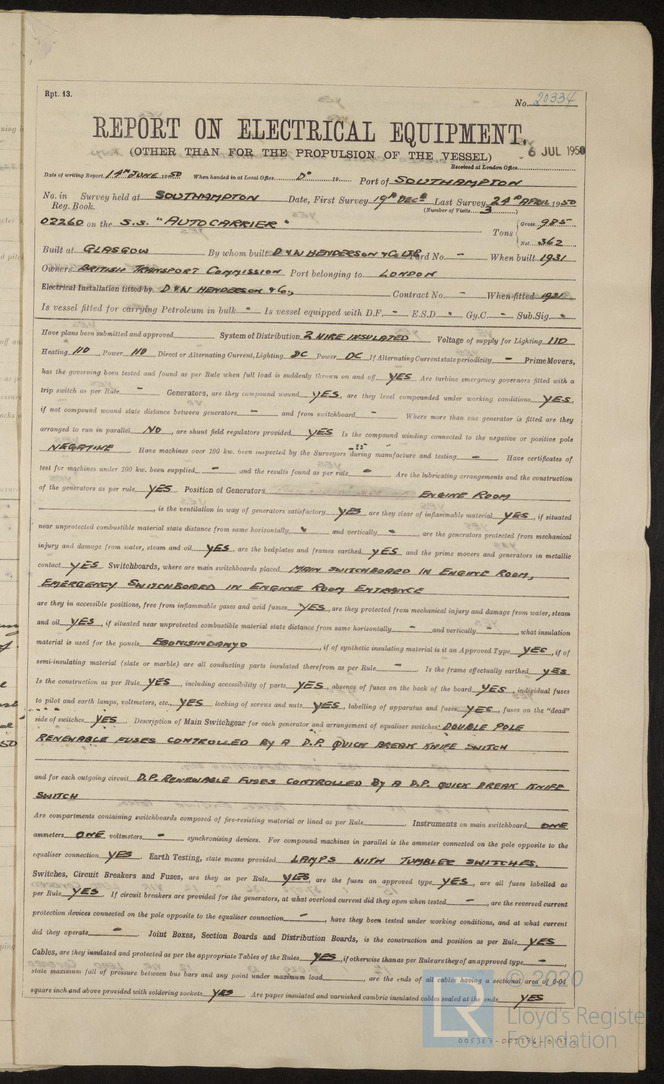 Rpt. 13.
No. 20334
REPORT ON ELECTRICAL EQUIPMENT.
(OTHER THAN FOR THE PROPULSION OF THE VESSEL)
6 JUL 1950
Received at London Office
Date of writing Report 14TH JUNE 1950 When handed in at Local Office Do 19 Port of SOUTHAMPTON
No. in Reg. Book. Survey held at SOUTHAMPTON Date, First Survey 19TH DECR Last Survey 24TH APRIL 1950
(Number of Visits 3)
02260 on the S.S. "AUTOCARRIER" Tons Gross 985
Net 362
Built at GLASGOW By whom built D & W HENDERSON & CO LTD Yard No. - When built 1931
Owners BRITISH TRANSPORT COMMISSION Port belonging to LONDON
Electrical Installation fitted by D & W HENDERSON & CO, Contract No. - When fitted 1931
Is vessel fitted for carrying Petroleum in bulk - Is vessel equipped with D.F. - E.S.D. - Gy.C. - Sub.Sig. -
Have plans been submitted and approved System of Distribution 2 WIRE INSULATED Voltage of supply for Lighting 110
Heating 110 Power 110 Direct or Alternating Current, Lighting DC Power DC If Alternating Current state periodicity - Prime Movers,
has the governing been tested and found as per Rule when full load is suddenly thrown on and off YES Are turbine emergency governors fitted with a
trip switch as per Rule - Generators, are they compound wound YES, are they level compounded under working conditions YES,
if not compound wound state distance between generators - and from switchboard - Where more than one generator is fitted are they
arranged to run in parallel NO, are shunt field regulators provided YES Is the compound winding connected to the negative or positive pole
NEGATIVE Have machines over 100 kw. been inspected by the Surveyors during manufacture and testing - Have certificates of
test for machines under 100 kw. been supplied - and the results found as per rule - Are the lubricating arrangements and the construction
of the generators as per rule YES Position of Generators ENGINE ROOM
, is the ventilation in way of generators satisfactory YES are they clear of inflammable material YES, if situated
near unprotected combustible material state distance from same horizontally - and vertically - are the generators protected from mechanical
injury and damage from water, steam and oil YES are the bedplates and frames earthed YES and the prime movers and generators in metallic
contact YES Switchboards, where are main switchboards placed MAIN SWITCHBOARD IN ENGINE ROOM,
EMERGENCY SWITCHBOARD IN ENGINE ROOM ENTRANCE
are they in accessible positions, free from inflammable gases and acid fumes YES, are they protected from mechanical injury and damage from water, steam
and oil YES, if situated near unprotected combustible material state distance from same horizontally - and vertically -, what insulation
material is used for the panels EBONISINDANYO, if of synthetic insulating material is it an Approved Type YES, if of
semi-insulating material (slate or marble) are all conducting parts insulated therefrom as per Rule - Is the frame effectually earthed YES
Is the construction as per Rule YES, including accessibility of parts YES, absence of fuses on the back of the board YES, individual fuses
to pilot and earth lamps, voltmeters, etc., YES locking of screws and nuts YES, labelling of apparatus and fuses YES, fuses on the "dead"
side of switches YES Description of Main Switchgear for each generator and arrangement of equaliser switches DOUBLE POLE
RENEWABLE FUSES CONTROLLED BY A D.P. QUICK BREAK KNIFE SWITCH
and for each outgoing circuit D.P. RENEWABLE FUSES CONTROLLED BY A D.P. QUICK BREAK KNIFE
SWITCH
Are compartments containing switchboards composed of fire-resisting material or lined as per Rule Instruments on main switchboard ONE
ammeters ONE voltmeters - synchronising devices. For compound machines in parallel is the ammeter connected on the pole opposite to the
equaliser connection YES Earth Testing, state means provided LAMPS WITH TUMBLER SWITCHES.
Switches, Circuit Breakers and Fuses, are they as per Rule YES, are the fuses an approved type YES, are all fuses labelled as
per Rule YES If circuit breakers are provided for the generators, at what overload current did they open when tested -, are the reversed current
protection devices connected on the pole opposite to the equaliser connection -, have they been tested under working conditions, and at what current
did they operate - Joint Boxes, Section Boards and Distribution Boards, is the construction and position as per Rule YES
Cables, are they insulated and protected as per the appropriate Tables of the Rules YES, if otherwise than as per Rule are they of an approved type -,
state maximum fall of pressure between bus bars and any point under maximum load , are the ends of all cables having a sectional area of 0·04
square inch and above provided with soldering sockets YES Are paper insulated and varnished cambric insulated cables sealed at the ends YES
© 2020
LR
Lloyd's Register
Foundation